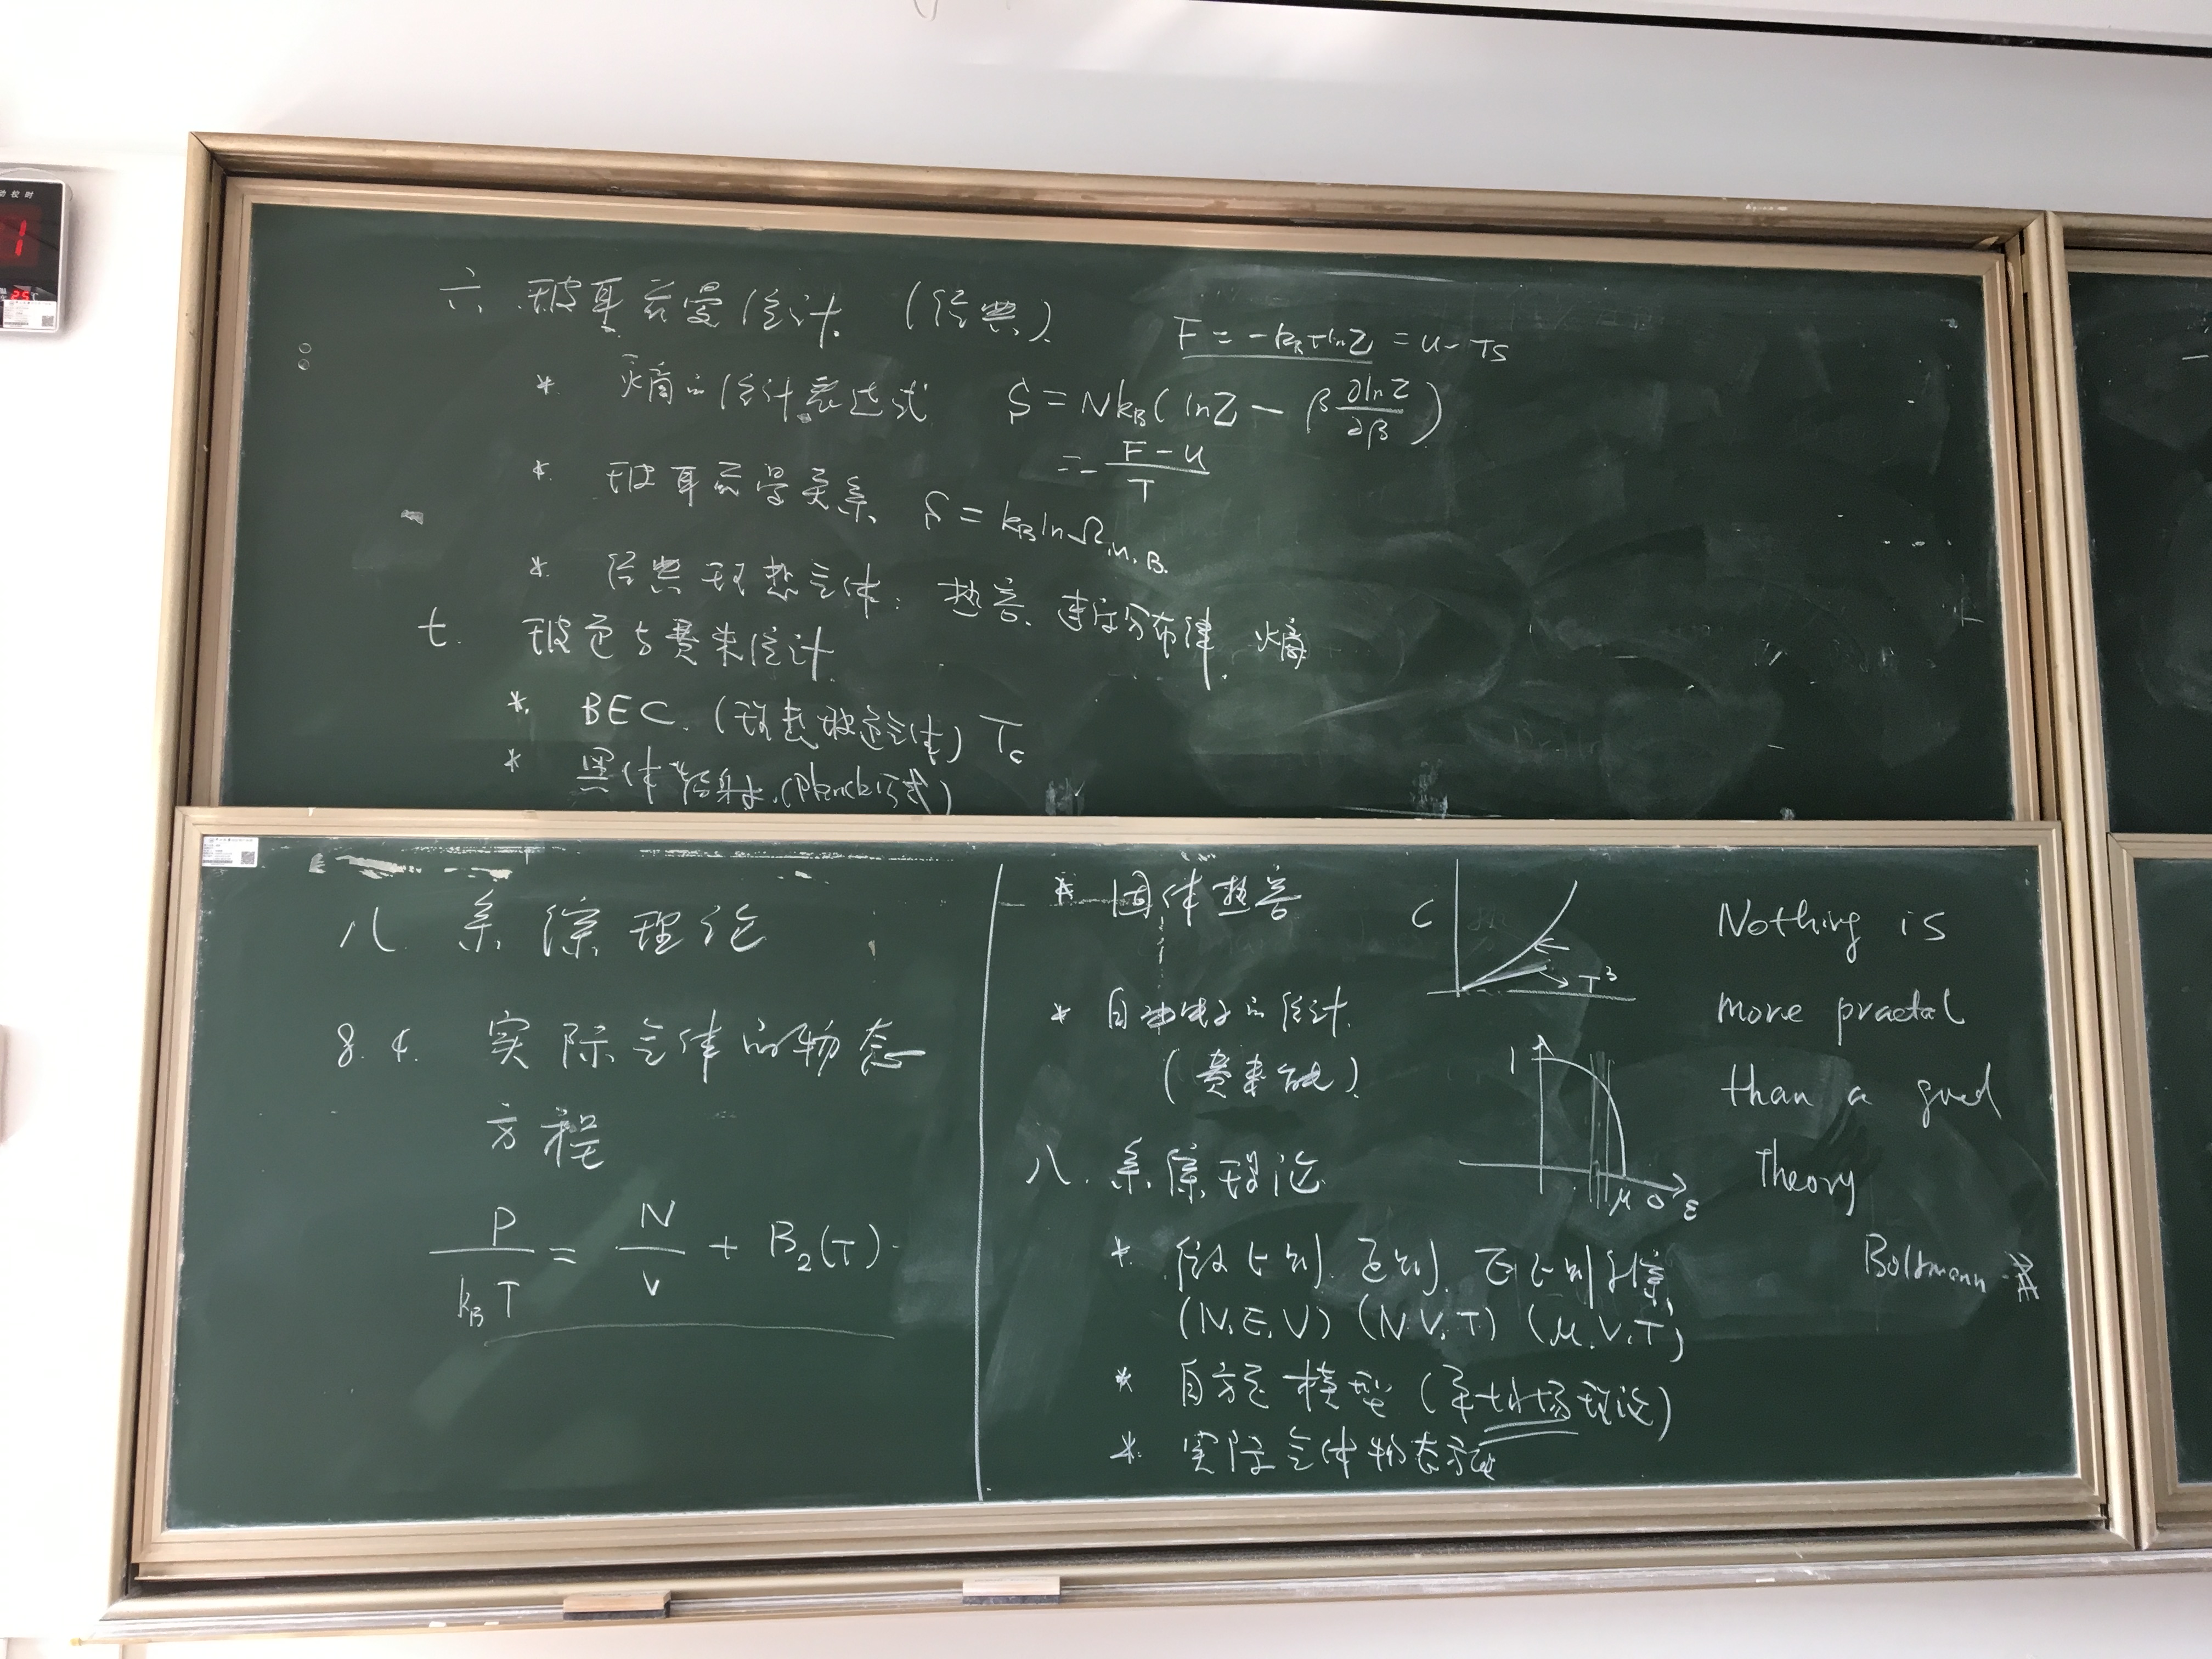 六 玻耳兹曼统计 (经典)
F = -k_B T ln Z = U - TS
* 熵的统计表达式 S = Nk_B ( ln Z - β ∂ln Z / ∂β )
= - (F - U) / T
* 玻耳兹曼关系 S = k_B ln Ω_M.B.
* 经典理想气体: 热容、速度分布律 熵
七. 玻色与费米统计
* BEC. (理想玻色气体) T_c
* 黑体辐射 (Planck公式)
八 系综理论
8.4. 实际气体的物态
方程
P / k_B T = N / V + B_2(T)
* 固体热容
C
T^3
* 自由电子的统计
(费米能)
1
μ 0 ε
八. 系综理论
* 微正则 正则 巨正则系综
(N.E.V) (N.V.T) (μ.V.T)
* 自旋模型 (平均场理论)
* 实际气体物态方程
Nothing is
more practal
than a good
Theory
Boltzmann